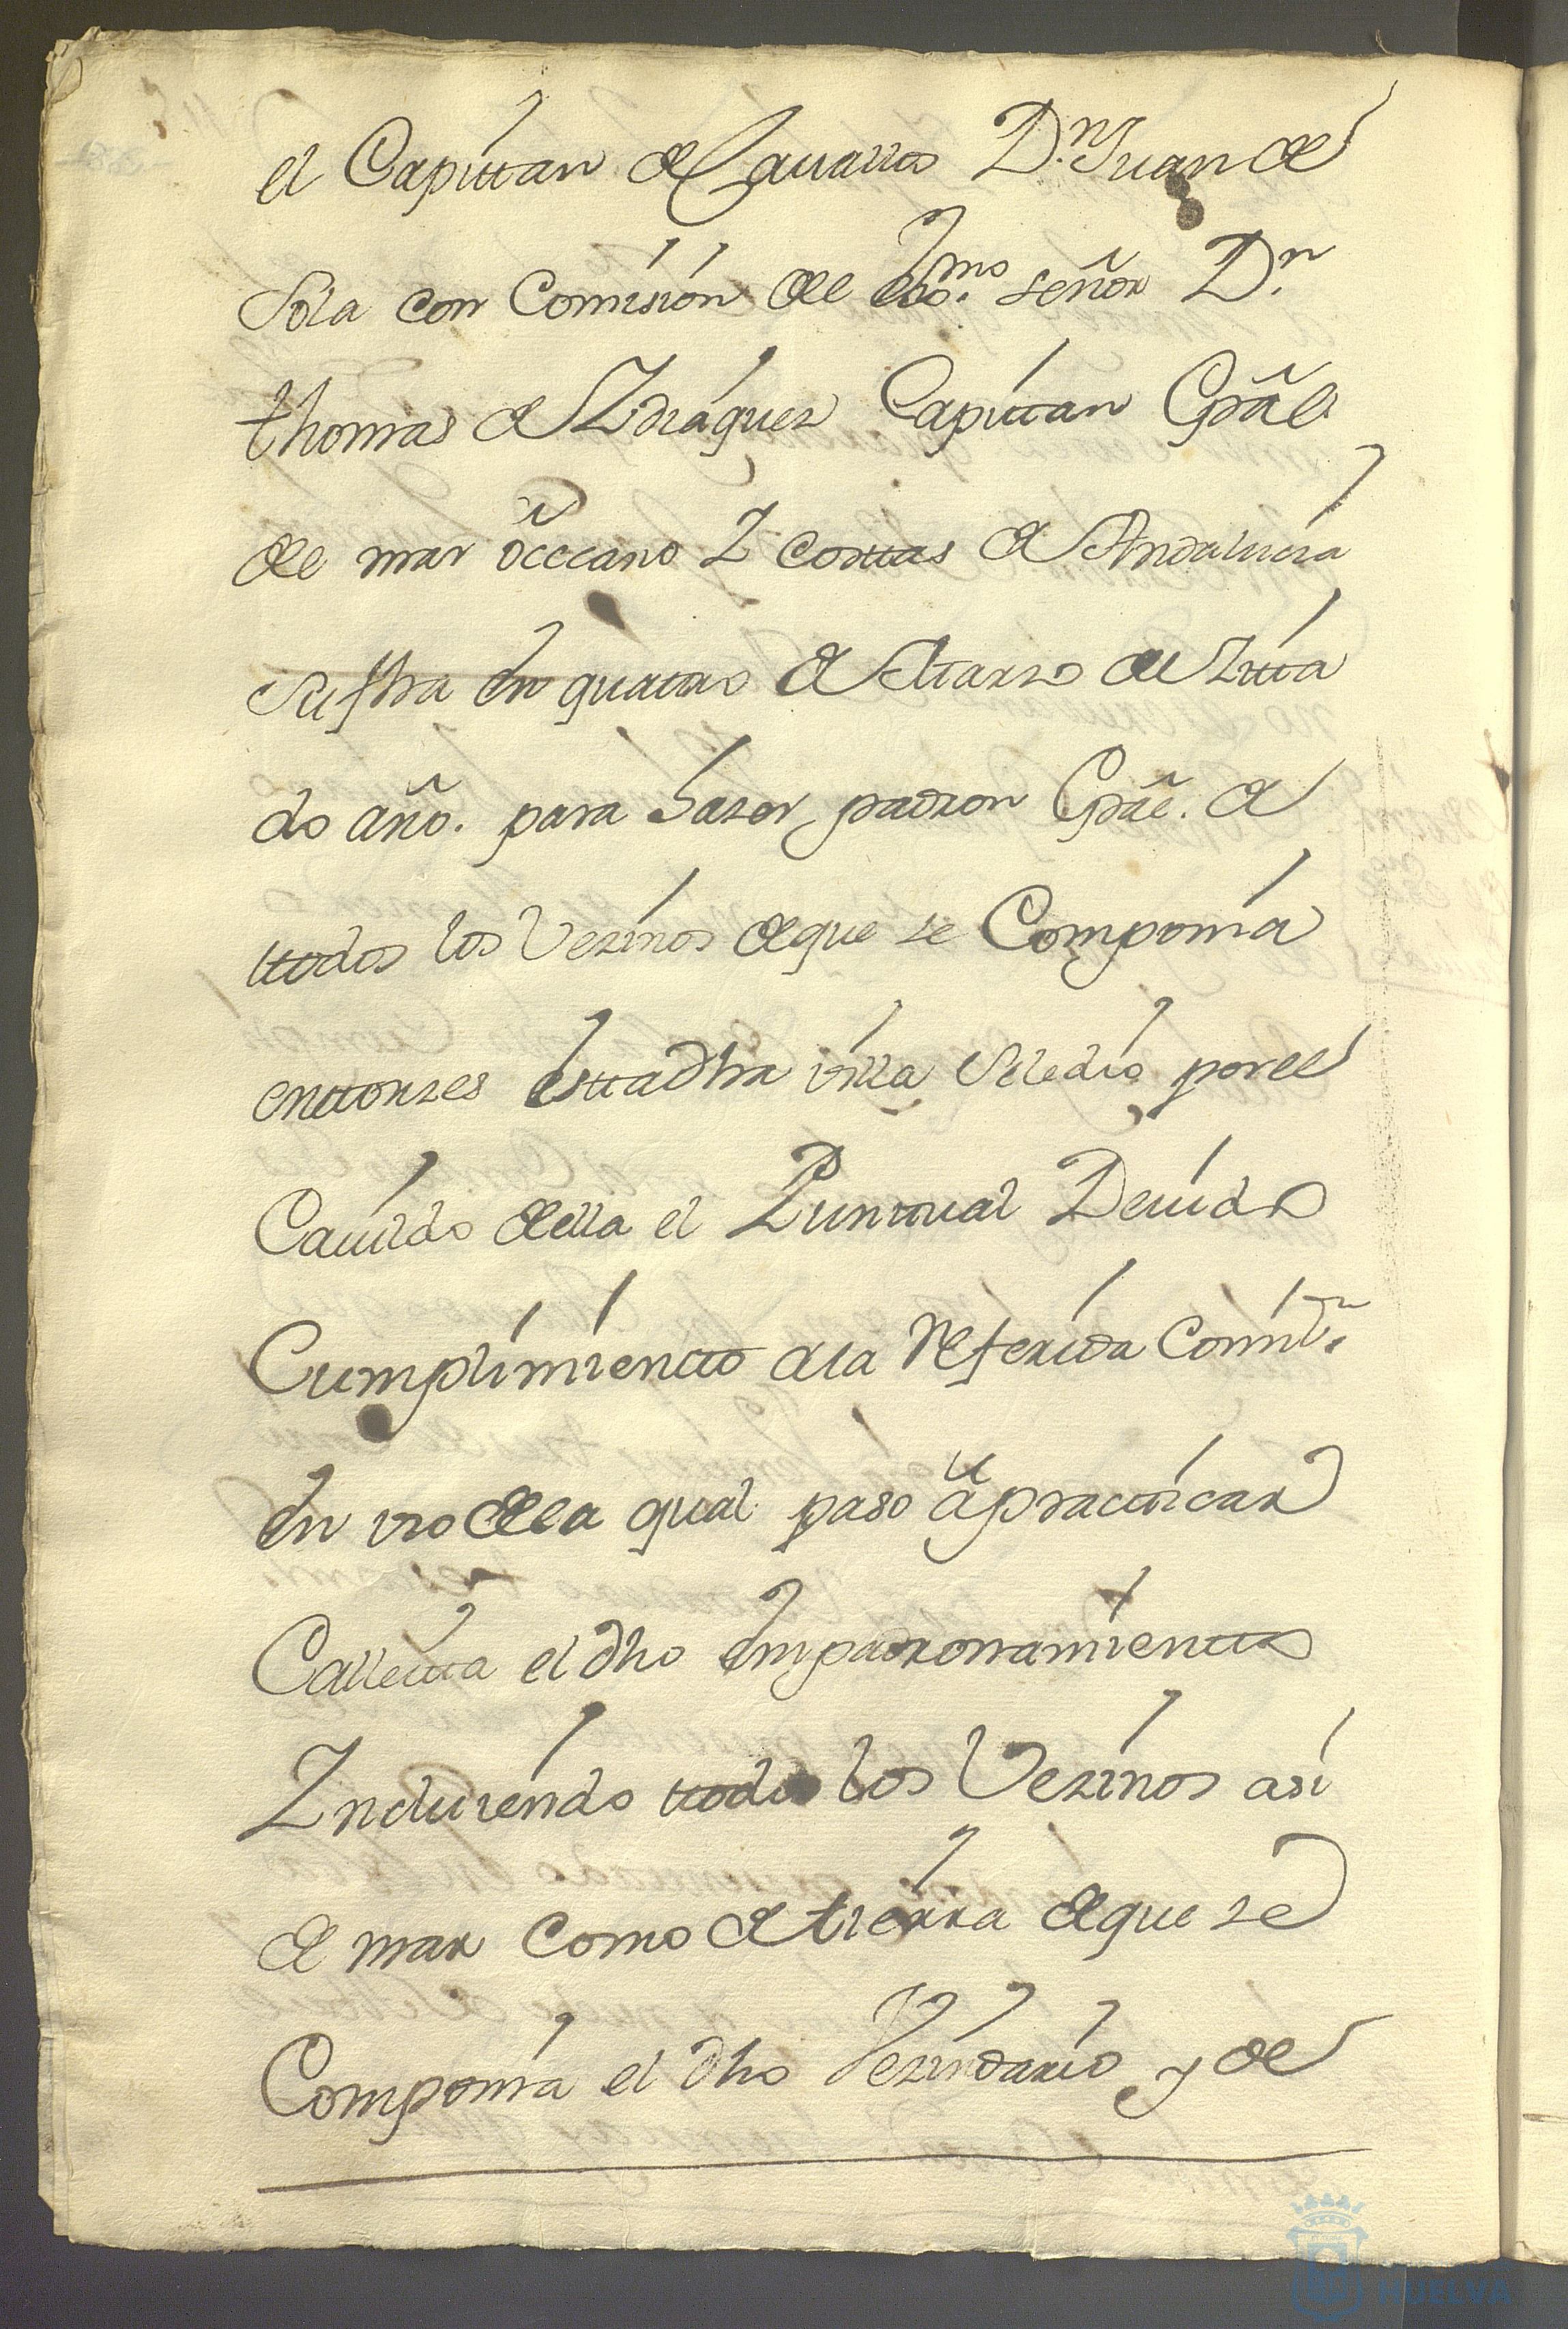 el Capittan de Cauallos D.n Juan de
Sola con Comisión del Ex.mo señor D.n
thomas de Ydiáquez Capittan Gràl
del mar occeano Y Costtas de Andalucia
su fha en quattro de Marzo del zitta
do año. para hazer padron Gràl. de
ttodos los Vezinos deque se Componía
enttonzes esttadha villa Seledió porel
Cauildo della el Punttual Deuido
Cumplimientto ala referida Comis.n
en vso dela qual paso á practticar
Callehitta el dho Empadronamientto
Yncluiendo ttodos los Vezinos asi
de mar como de tierra deque se
Componía el dho Vezindario y de
HUELVA